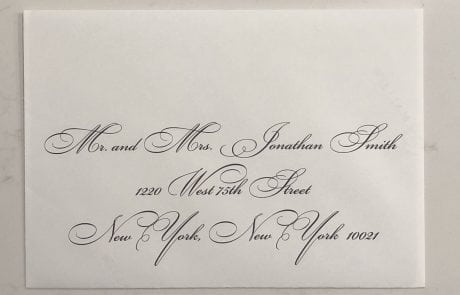 Mr. and Mrs. Jonathan Smith
1220 West 75th Street
New York, New York 10021